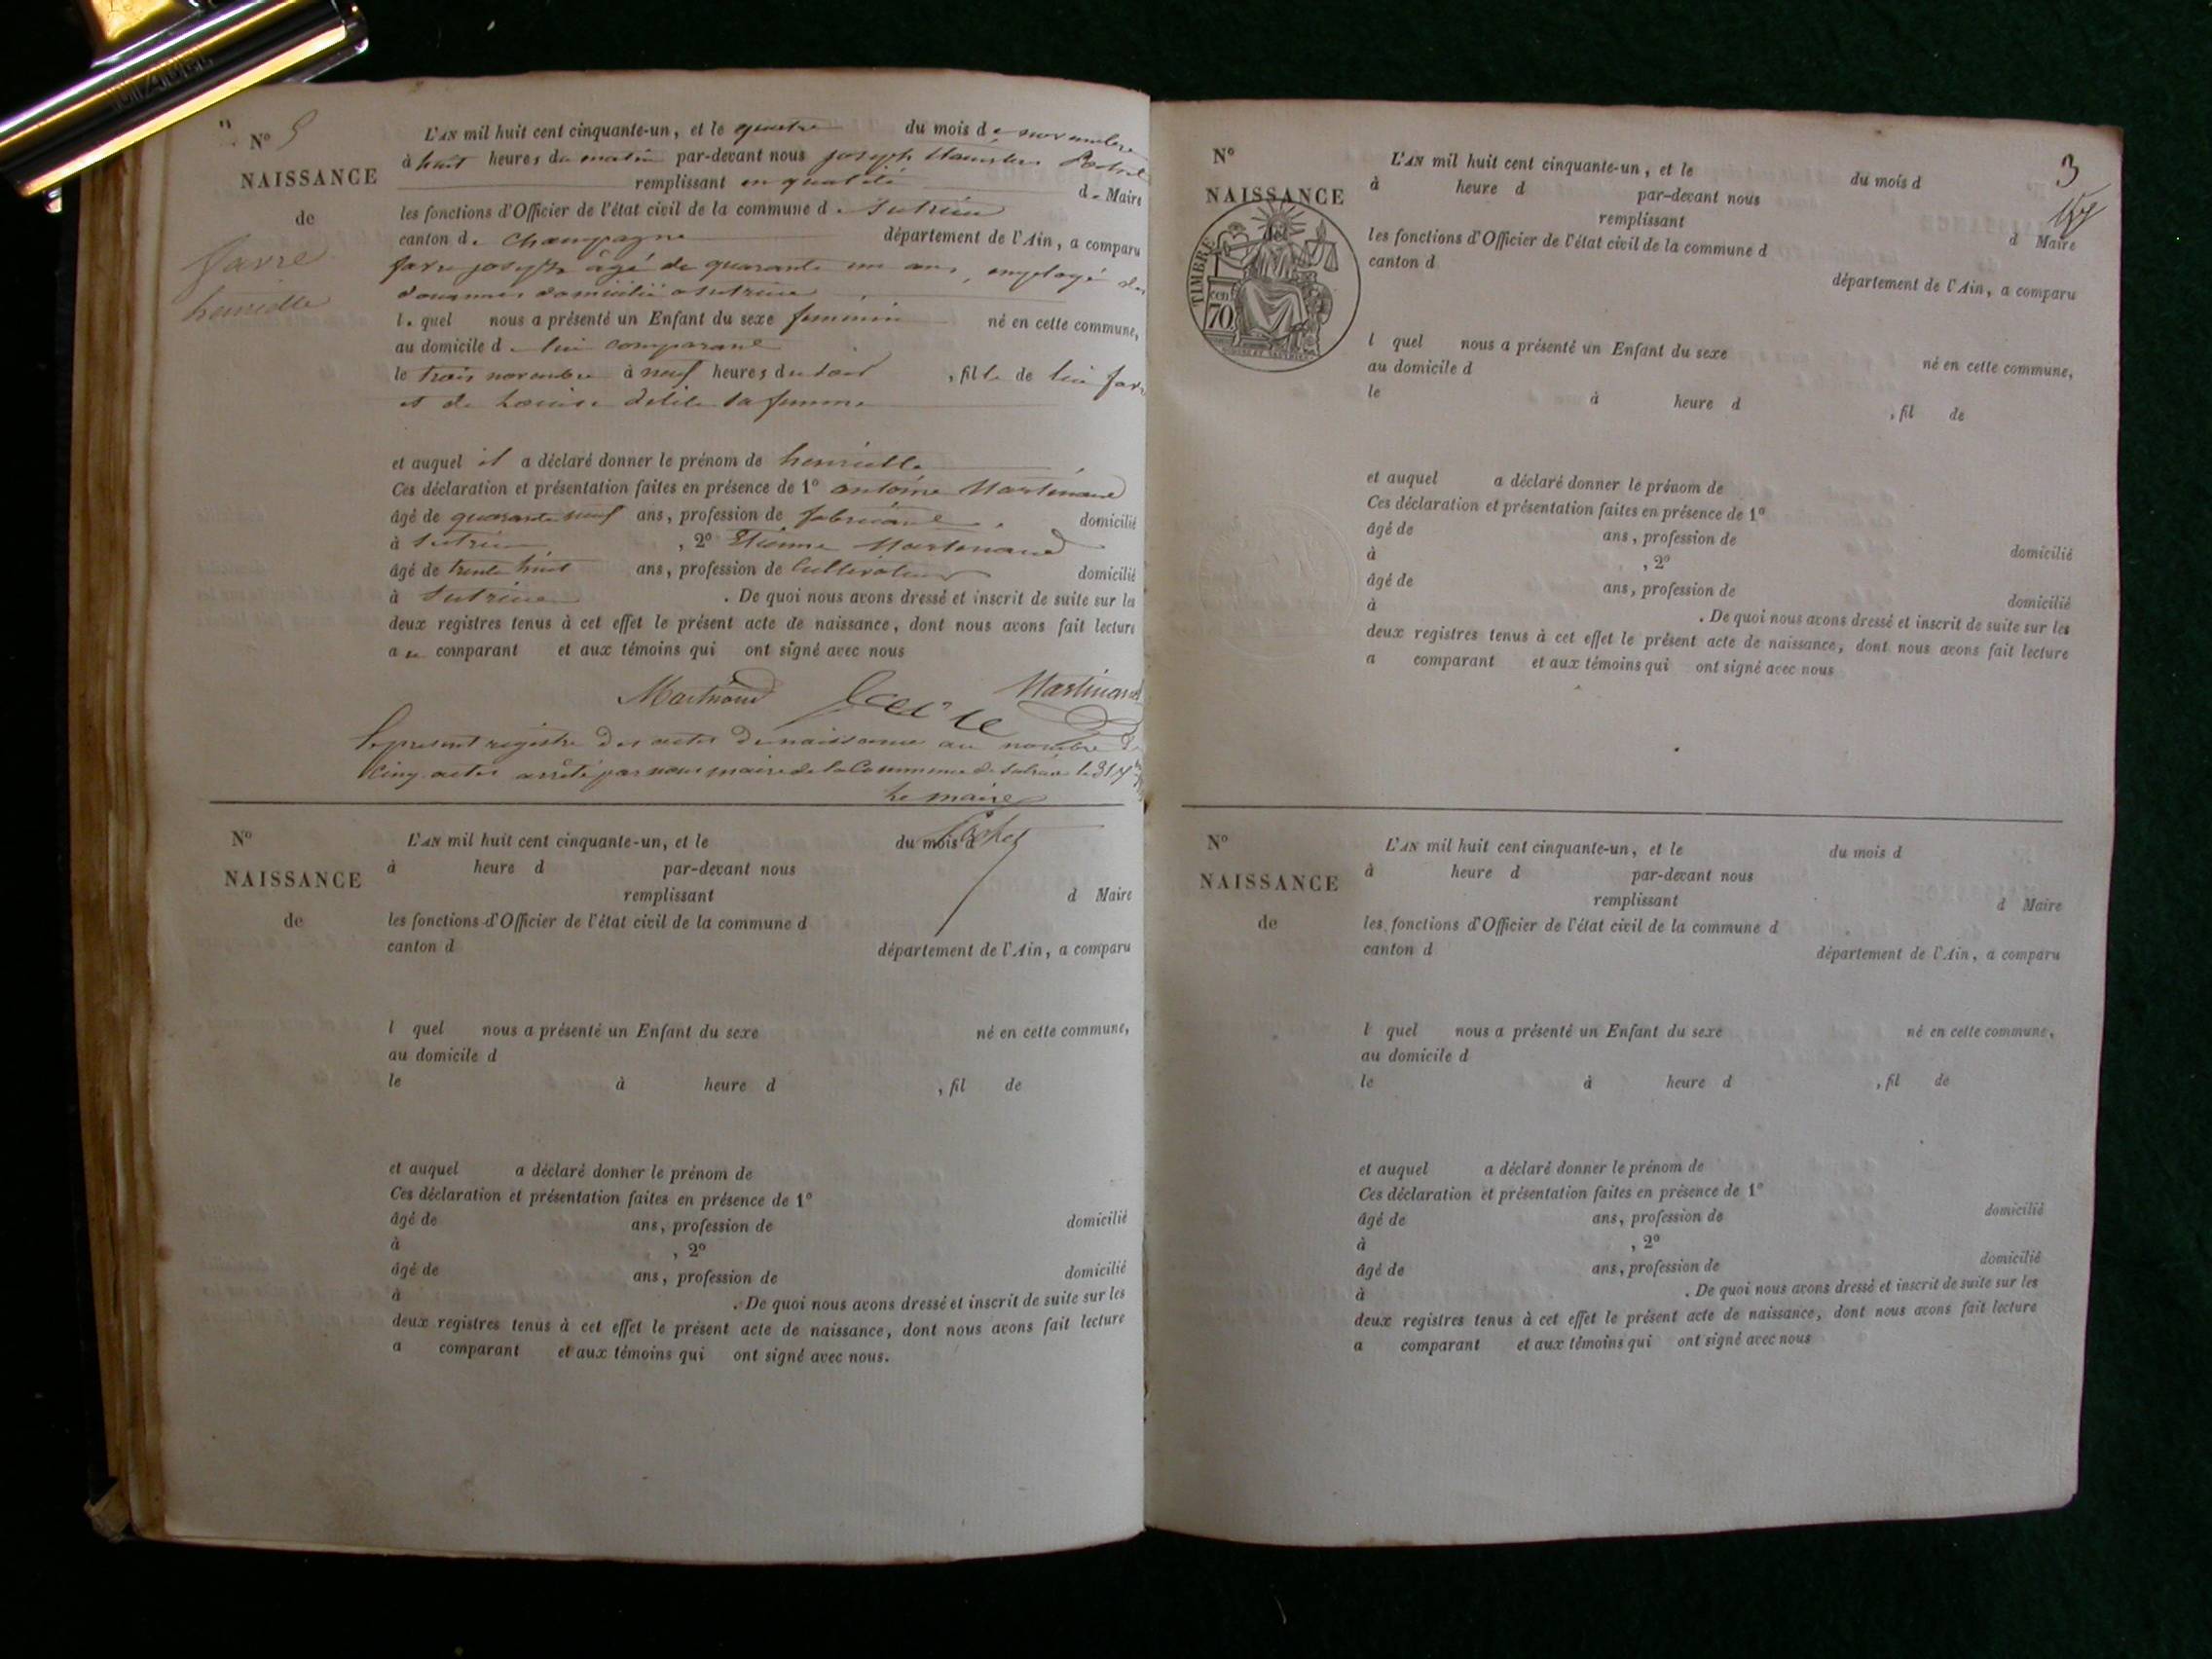 N° 5
NAISSANCE
de
favre
henriette
L'AN mil huit cent cinquante-un, et le quatre du mois de novembre
à huit heures du matin par-devant nous joseph
remplissant en qualité de Maire
les fonctions d'Officier de l'état civil de la commune de Sutrieu
canton de Champagne département de l'Ain, a comparu
favre joseph âgé de quarante un ans, employé des
douannes domicilié a sutrieu
lequel nous a présenté un Enfant du sexe feminin né en cette commune,
au domicile de lui comparant
le trois novembre à neuf heures du soir, fille de lui favre
et de Louise delile sa femme
et auquel il a déclaré donner le prénom de henriette
Ces déclaration et présentation faites en présence de 1° antoine Martinand
âgé de quarante neuf ans, profession de fabricant, domicilié
à Sutrieu, 2° Etienne Martinand
âgé de trente huit ans, profession de Cultivateur domicilié
à Sutrieu. De quoi nous avons dressé et inscrit de suite sur les
deux registres tenus à cet effet le présent acte de naissance, dont nous avons fait lecture
au comparant et aux témoins qui ont signé avec nous
Martinand favre Martinand
Le present registre des actes de naissance au nombre de
Cinq actes arrêté par nous maire de la Commune de Sutrieu le 31
Le maire
N°
NAISSANCE
de
L'AN mil huit cent cinquante-un, et le du mois d
à heure d par-devant nous
remplissant d Maire
les fonctions d'Officier de l'état civil de la commune d
canton d département de l'Ain, a comparu
l quel nous a présenté un Enfant du sexe né en cette commune,
au domicile d
le à heure d , fil de
et auquel a déclaré donner le prénom de
Ces déclaration et présentation faites en présence de 1°
âgé de ans, profession de domicilié
à , 2°
âgé de ans, profession de domicilié
à . De quoi nous avons dressé et inscrit de suite sur les
deux registres tenus à cet effet le présent acte de naissance, dont nous avons fait lecture
a comparant et aux témoins qui ont signé avec nous.
3
N°
NAISSANCE
de
TIMBRE
70 cent
L'AN mil huit cent cinquante-un, et le du mois d
à heure d par-devant nous
remplissant d Maire
les fonctions d'Officier de l'état civil de la commune d
canton d département de l'Ain, a comparu
l quel nous a présenté un Enfant du sexe né en cette commune,
au domicile d
le à heure d , fil de
et auquel a déclaré donner le prénom de
Ces déclaration et présentation faites en présence de 1°
âgé de ans, profession de domicilié
à , 2°
âgé de ans, profession de domicilié
à . De quoi nous avons dressé et inscrit de suite sur les
deux registres tenus à cet effet le présent acte de naissance, dont nous avons fait lecture
a comparant et aux témoins qui ont signé avec nous
N°
NAISSANCE
de
L'AN mil huit cent cinquante-un, et le du mois d
à heure d par-devant nous
remplissant d Maire
les fonctions d'Officier de l'état civil de la commune d
canton d département de l'Ain, a comparu
l quel nous a présenté un Enfant du sexe né en cette commune,
au domicile d
le à heure d , fil de
et auquel a déclaré donner le prénom de
Ces déclaration et présentation faites en présence de 1°
âgé de ans, profession de domicilié
à , 2°
âgé de ans, profession de domicilié
à . De quoi nous avons dressé et inscrit de suite sur les
deux registres tenus à cet effet le présent acte de naissance, dont nous avons fait lecture
a comparant et aux témoins qui ont signé avec nous